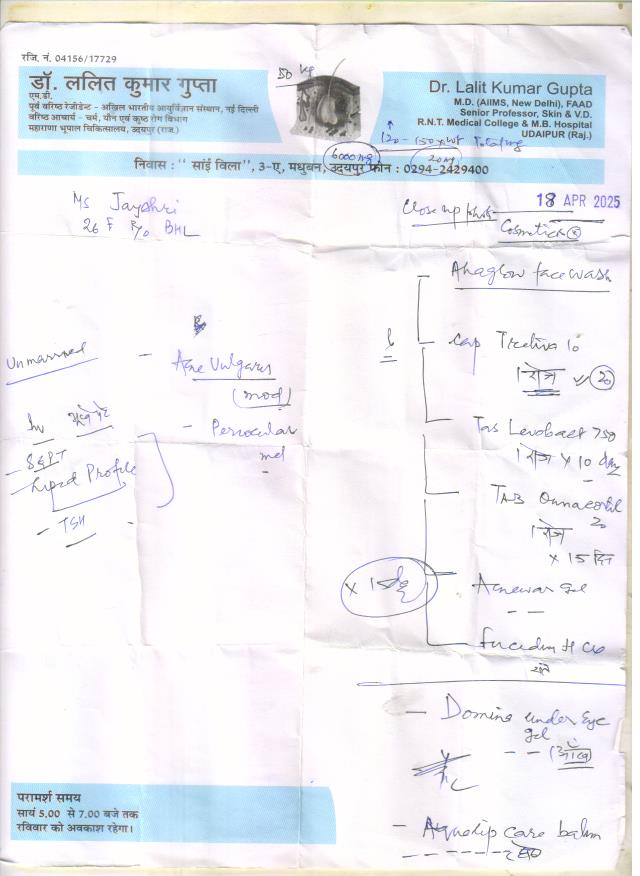 रजि. नं. 04156/17729
डॉ. ललित कुमार गुप्ता
एम.डी.
पूर्व वरिष्ठ रेजीडेन्ट - अखिल भारतीय आयुर्विज्ञान संस्थान, नई दिल्ली
वरिष्ठ आचार्य - चर्म, यौन एवं कुष्ठ रोग विभाग
महाराणा भूपाल चिकित्सालय, उदयपुर (राज.)
50 kg
Dr. Lalit Kumar Gupta
M.D. (AIIMS, New Delhi), FAAD
Senior Professor, Skin & V.D.
R.N.T. Medical College & M.B. Hospital
UDAIPUR (Raj.)
120 - 150 x wt Total mg
6000 mg
20 mg
निवास : '' सांई विला'', 3-ए, मधुबन, उदयपुर फोन : 0294-2429400
Ms Jayshri
26 F R/o BHL
18 APR 2025
Close up photo
Cosmetics
Ahaglow face wash
Cap Tretiva 10
1 रोज 20
Unmarried
- Acne Vulgaris
(mod)
- Periocular
mel
Inv भूखे पेट
- SGPT
- Lipid Profile
- TSH
Tab Levobact 750
1 रोज x 10 days
TAB Omnacortil
20
1 रोज
x 15 दिन
x 15
Acnewar gel
Fucidin H Cr
- Domina under Eye
gel
- Aquadip care balm
परामर्श समय
सायं 5.00 से 7.00 बजे तक
रविवार को अवकाश रहेगा।